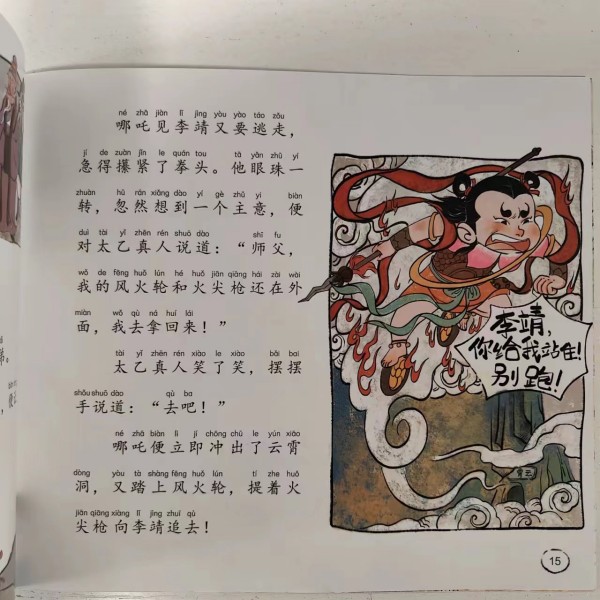 né zhā jiàn lǐ jìng yòu yào táo zǒu
哪吒见李靖又要逃走，
jí de zuàn jǐn le quán tou tā yǎn zhū yí
急得攥紧了拳头。他眼珠一
zhuàn hū rán xiǎng dào yí gè zhǔ yi biàn
转，忽然想到一个主意，便
duì tài yǐ zhēn rén shuō dào shī fu
对太乙真人说道：“师父，
wǒ de fēng huǒ lún hé huǒ jiān qiāng hái zài wài
我的风火轮和火尖枪还在外
miàn wǒ qù ná huí lái
面，我去拿回来！”
tài yǐ zhēn rén xiào le xiào bǎi bai
太乙真人笑了笑，摆摆
shǒu shuō dào qù ba
手说道：“去吧！”
né zhā biàn lì jí chōng chū le yún xiāo
哪吒便立即冲出了云霄
dòng yòu tà shàng fēng huǒ lún tí zhe huǒ
洞，又踏上风火轮，提着火
jiān qiāng xiàng lǐ jìng zhuī qù
尖枪向李靖追去！
李靖，
你给我站住！
别跑！
15